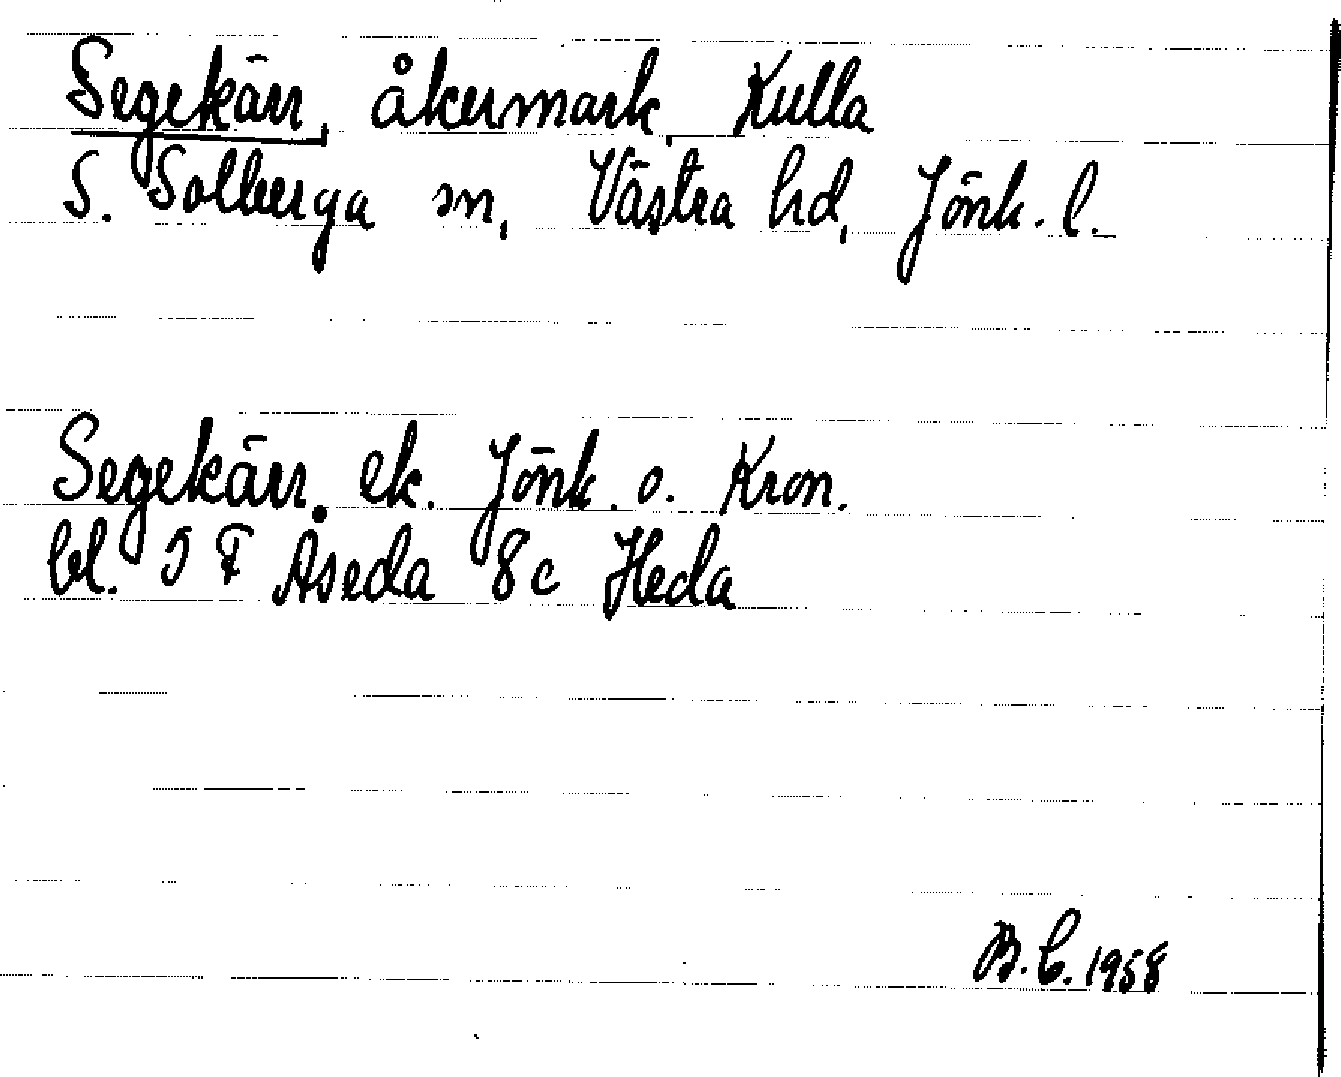 Segekärr, åkermark, Kulla
S. Solberga sn, Västra hd, Jönk. l.
Segekärr. ek. Jönk. o. Kron.
bl. 5 F Åseda 8 c Heda
B. C. 1958